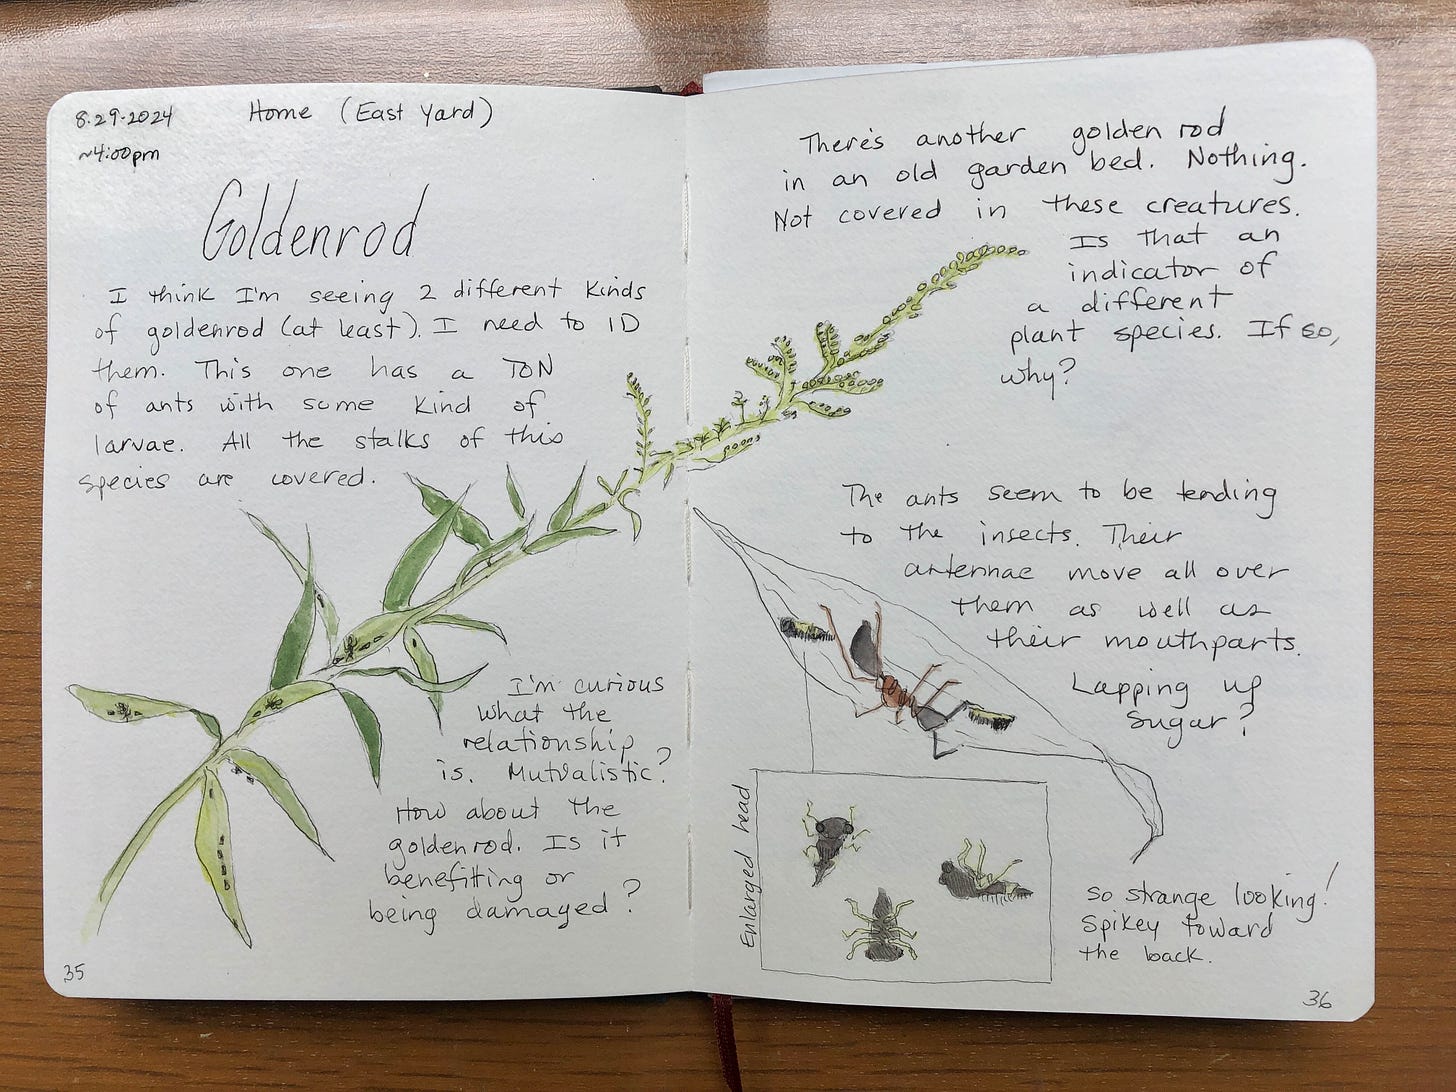 8.29.2024 Home (East Yard)
~4:00pm
Goldenrod
I think I'm seeing 2 different kinds
of goldenrod (at least). I need to ID
them. This one has a TON
of ants with some kind of
larvae. All the stalks of this
species are covered.
I'm curious
what the
relationship
is. Mutualistic?
How about the
goldenrod. Is it
benefitting or
being damaged?
35
There's another golden rod
in an old garden bed. Nothing.
Not covered in these creatures.
Is that an
indicator of
a different
plant species. If so,
why?
The ants seem to be tending
to the insects. Their
antennae move all over
them as well as
their mouthparts.
Lapping up
sugar?
Enlarged head
so strange looking!
Spikey toward
the back.
36